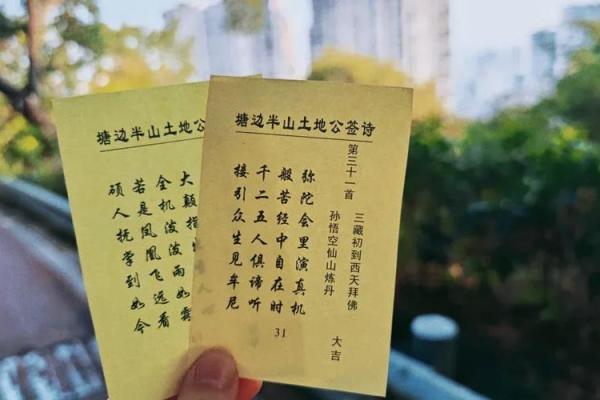 塘边半山土地公签诗
第三十一首
三藏初到西天拜佛
孙悟空仙山炼丹
大吉
弥陀会里演真机
般苦经中自在时
千二五人俱谛听
接引众生见牟尼
31
塘边半山土地公
大颠指
全机泼泼雨如
若是凤凰飞远看
硕人抚掌到如今